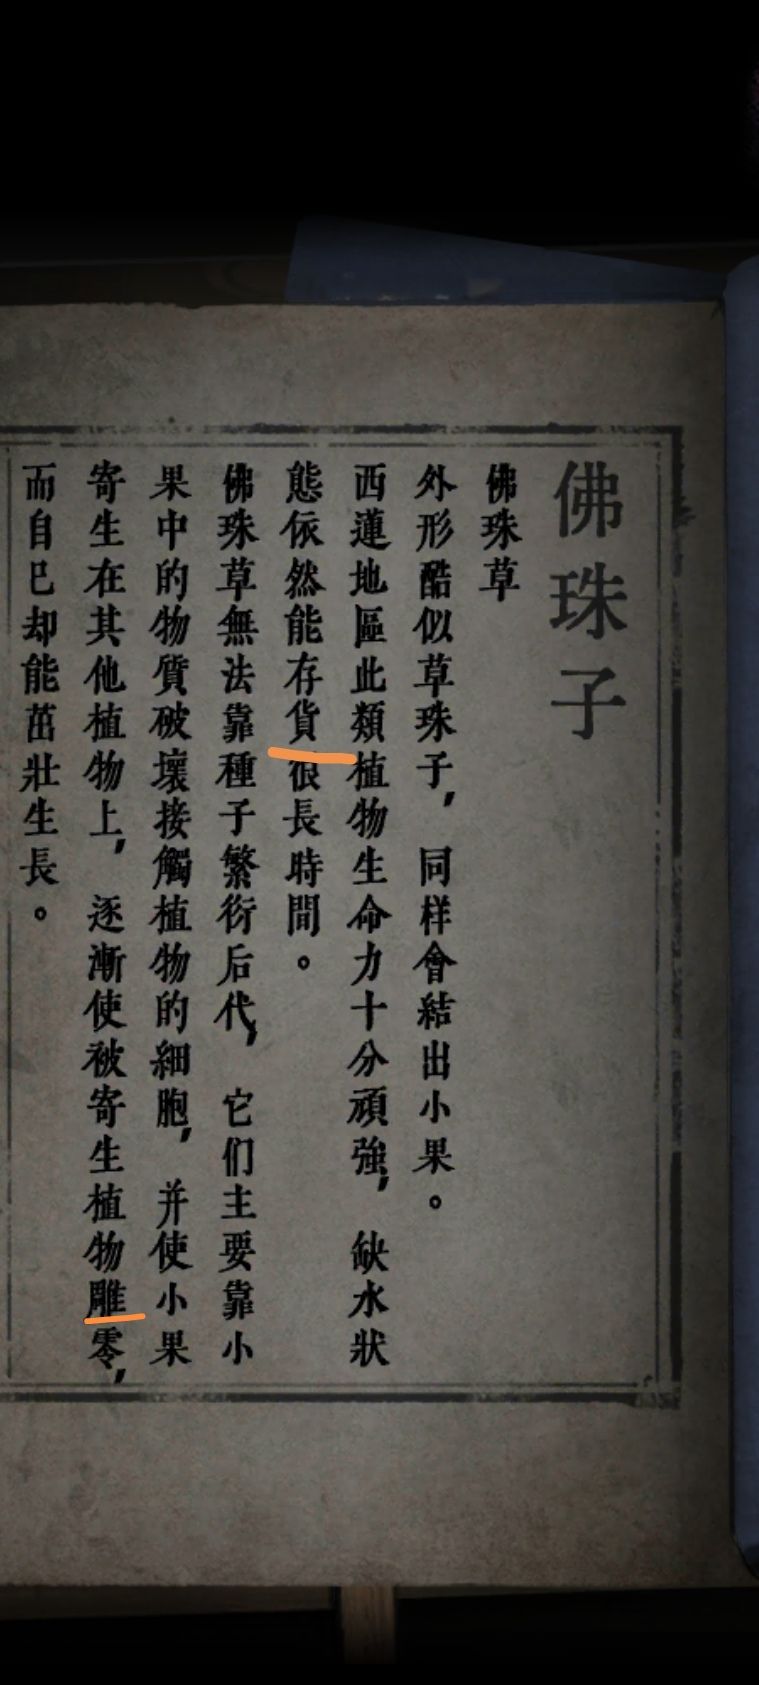 佛珠子
佛珠草
外形酷似草珠子，同样會結出小果。
西蓮地區此類植物生命力十分頑強，缺水狀
態依然能存貨很長時間。
佛珠草無法靠種子繁衍后代，它们主要靠小
果中的物質破壞接觸植物的細胞，并使小果
寄生在其他植物上，逐漸使被寄生植物雕零，
而自已却能茁壯生長。